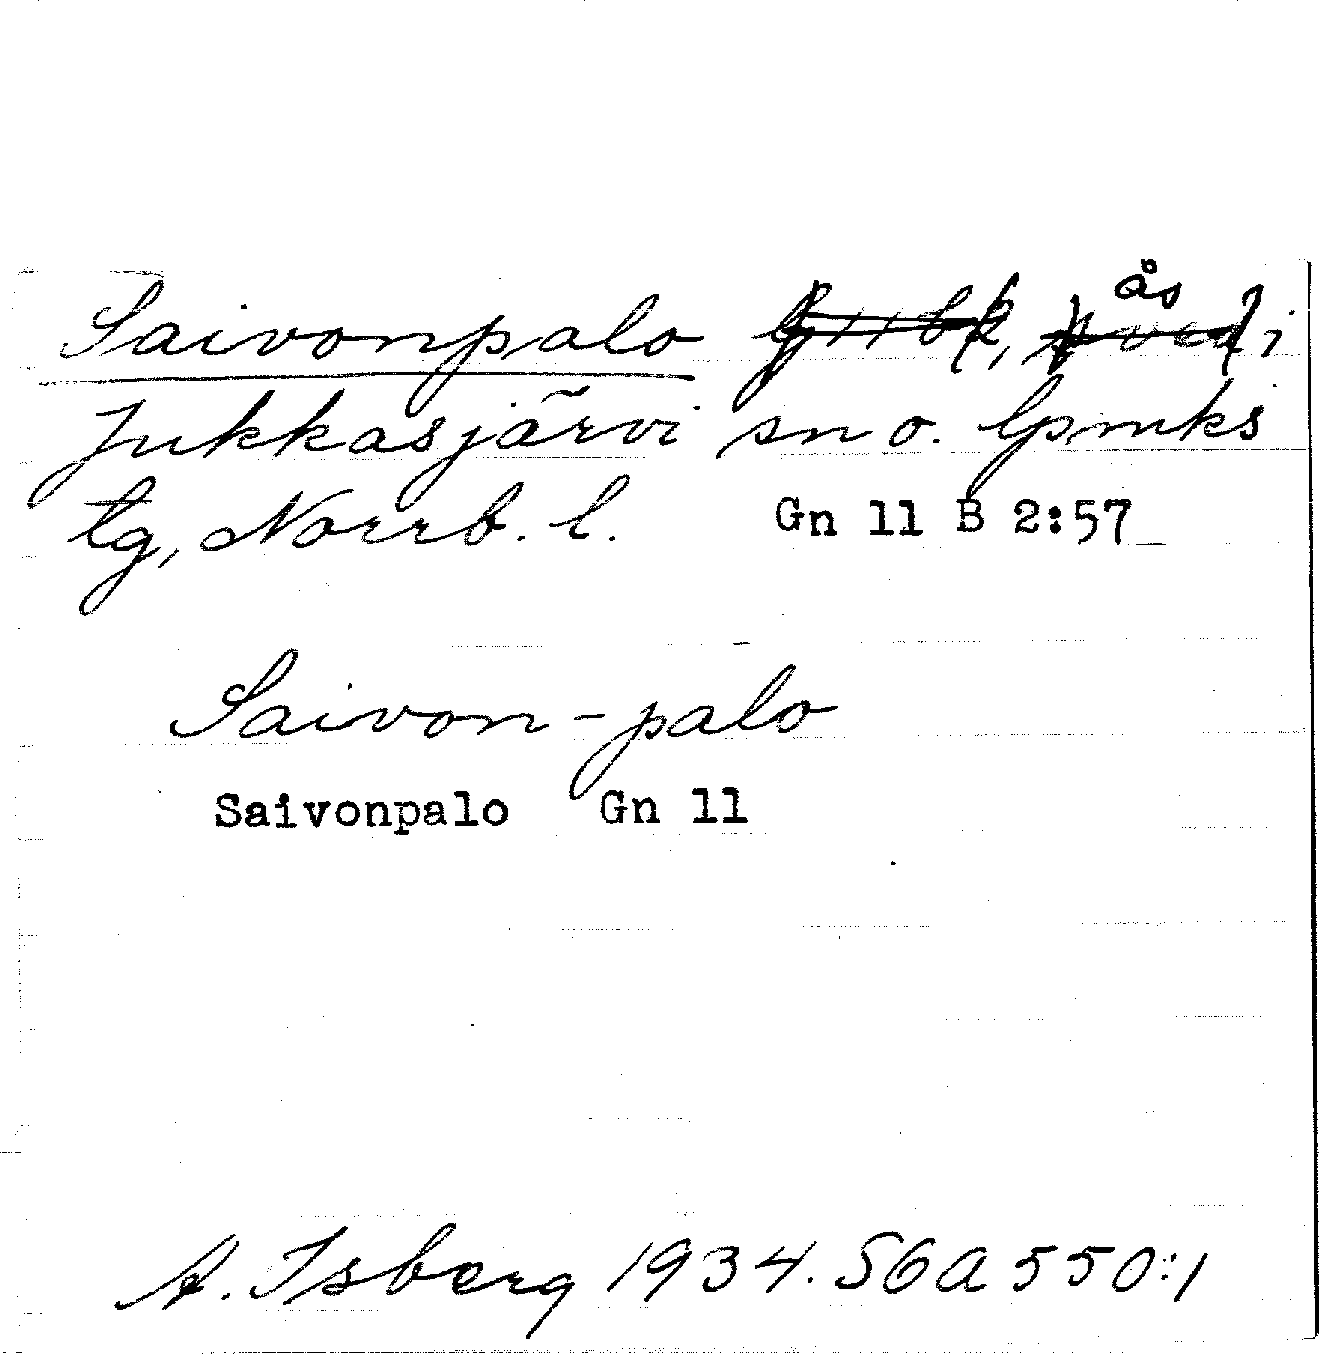 Saivonpalo ås i
Jukkasjärvi sn o. lpmks
tg, Norrb. l. Gn 11 B 2:57
Saivon-palo
Saivonpalo Gn 11
A. Isberg 1934. SGA 550:1